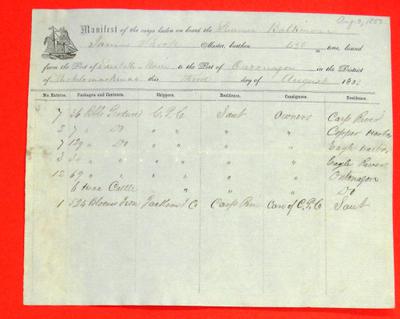 Aug 3, 1853
Manifest of the cargo laden on board the Steamer Baltimore
James Master, burthen 630 tons, bound
from the Port of Sault Ste Marie to the Port of Ontonagon in the District
of Michilimackinac this Third day of August 1853
No. Entries. Packages and Contents. Shippers. Residence. Consignees. Residence.
7 36 Bbls C.P.Co Saut Owners Carp River
2 7 " Do " " " Copper Harbor
7 129 " Do " " " Eagle Harbor
3 " " " " Eagle River
12 69 " " " " Ontonagon
6 Cattle " " " Do
1 524 Blooms Iron Jackson I Co Carp River Care of C.P.Co Saut